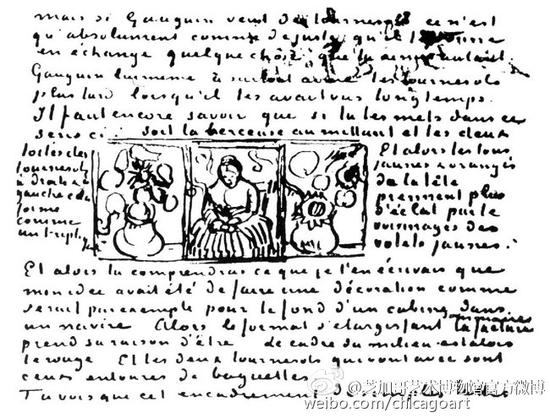 mais si Gauguin veut des tournesols ce n'est
qu'absolument comme de juste qu'il te donne
en échange quelque chose que tu aimes autant.
Gauguin lui meme a surtout aimé les tournesols
plus tard lorsqu'il les avait vus longtemps.
Il faut encore savoir que si tu les mets dans ce
sens ci : soit la berceuse au milieu et les deux
toiles des
tournesols
à droite &
à gauche cela
forme
comme
un triptyque
Et alors les tons
jaunes & orangés
de la tête
prennent plus
d'éclat par le
voisinages des
volets jaunes.
Et alors tu comprendras ce que je t'en écrivais que
mon idee avait été de faire une décoration comme
serait par exemple pour le fond d'un cabine dans
un navire Alors le format s'élargissant la facture
sommaire
prend sa raison d'être le cadre du milieu est alors
le rouge Et les deux tournesols qui vont avec sont
ceux entourés de baguettes
Tu vois que cet encadrement de simples lattes
@芝加哥艺术博物馆官方微博
weibo.com/chicagoart